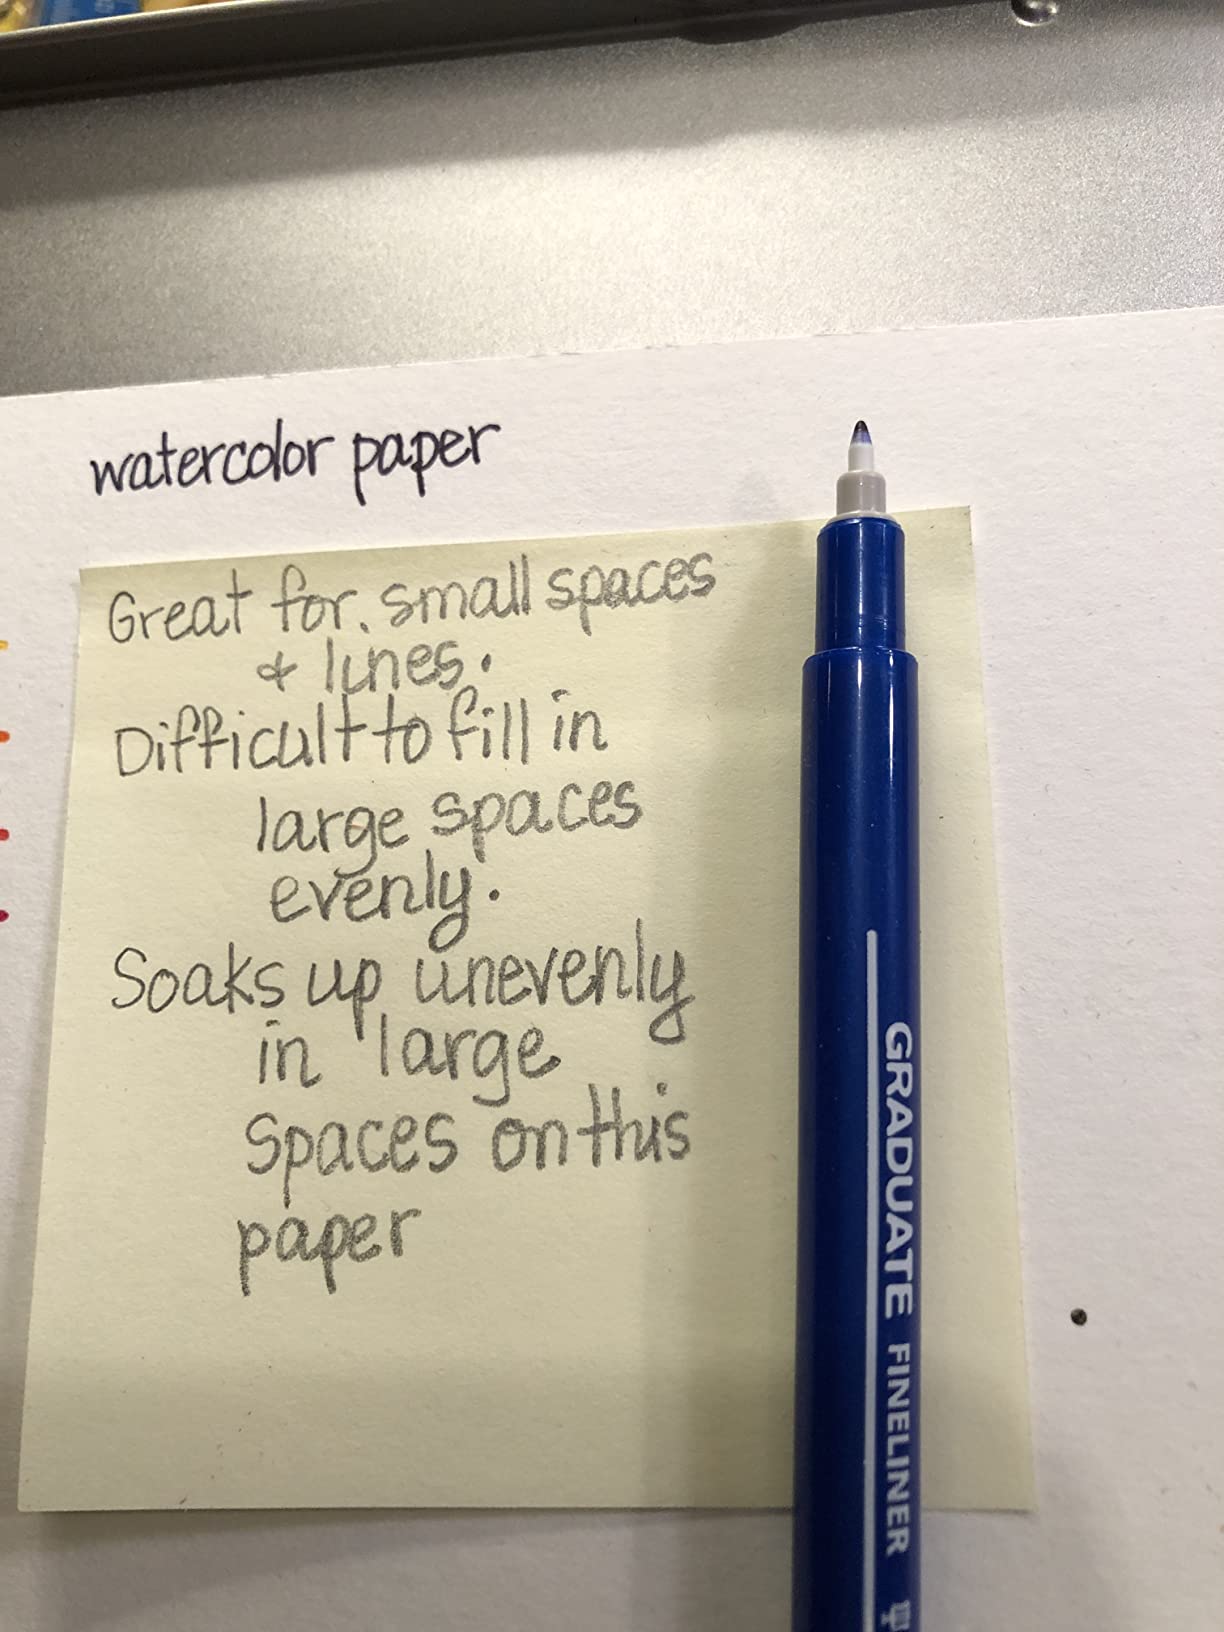 watercolor paper
Great for. small spaces
& lines.
Difficult to fill in
large spaces
evenly.
Soaks up unevenly
in large
spaces on this
paper
GRADUATE FINELINER